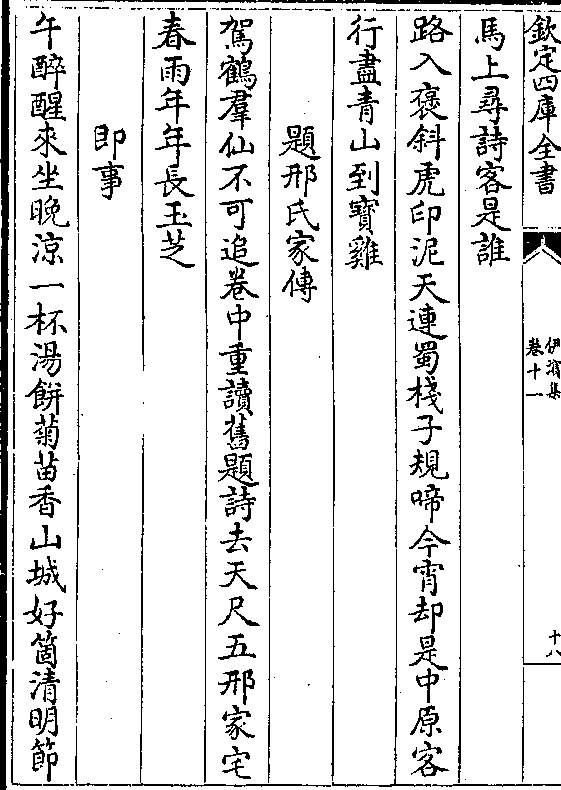 欽定四庫全書
伊濱集
卷十一
十八
馬上尋詩客是誰
路入褒斜虎印泥天連蜀棧子規啼今宵却是中原客
行盡青山到寶雞
題邢氏家傳
駕鶴羣仙不可追卷中重讀舊題詩去天尺五邢家宅
春雨年年長玉芝
即事
午醉醒來坐晚涼一杯湯餅菊苗香山城好箇清明節